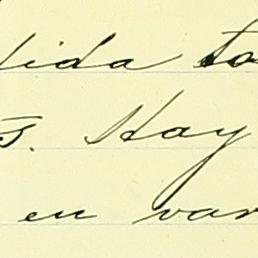 ida to
s. Hay
en var